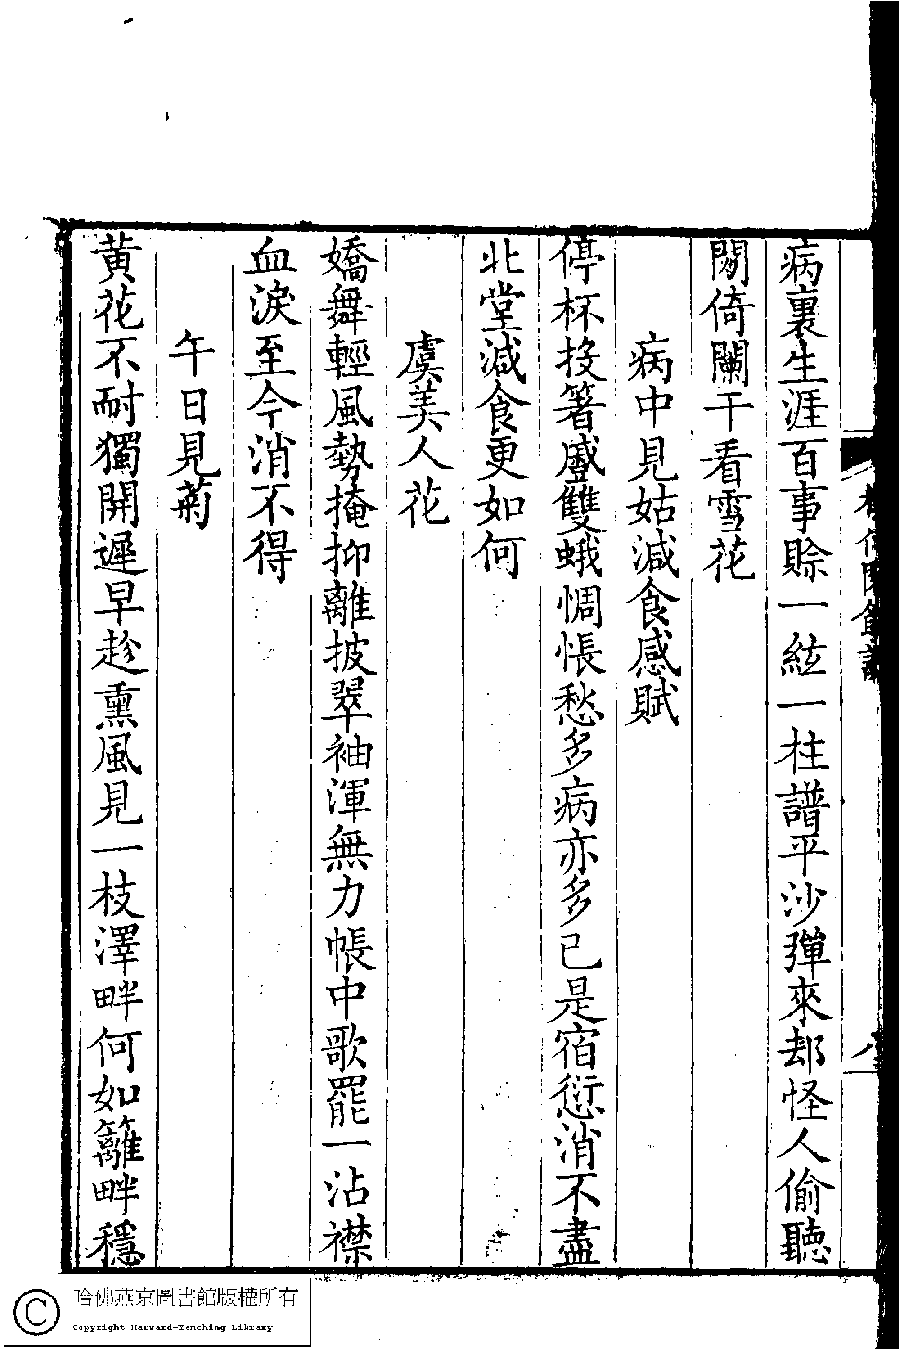 病裏生涯百事賒一絃一柱譜平沙彈來却怪人偷聽
閒倚闌干看雪花
病中見姑減食感賦
停杯投箸蹙雙蛾惆悵愁多病亦多已是宿愆消不盡
北堂減食更如何
虞美人花
嬌舞輕風勢掩抑離披翠袖渾無力帳中歌罷一沾襟
血淚至今消不得
午日見菊
黃花不耐獨開遲早趁熏風見一枝澤畔何如籬畔穩
哈佛燕京圖書館版權所有
Copyright Harvard-Yenching Library